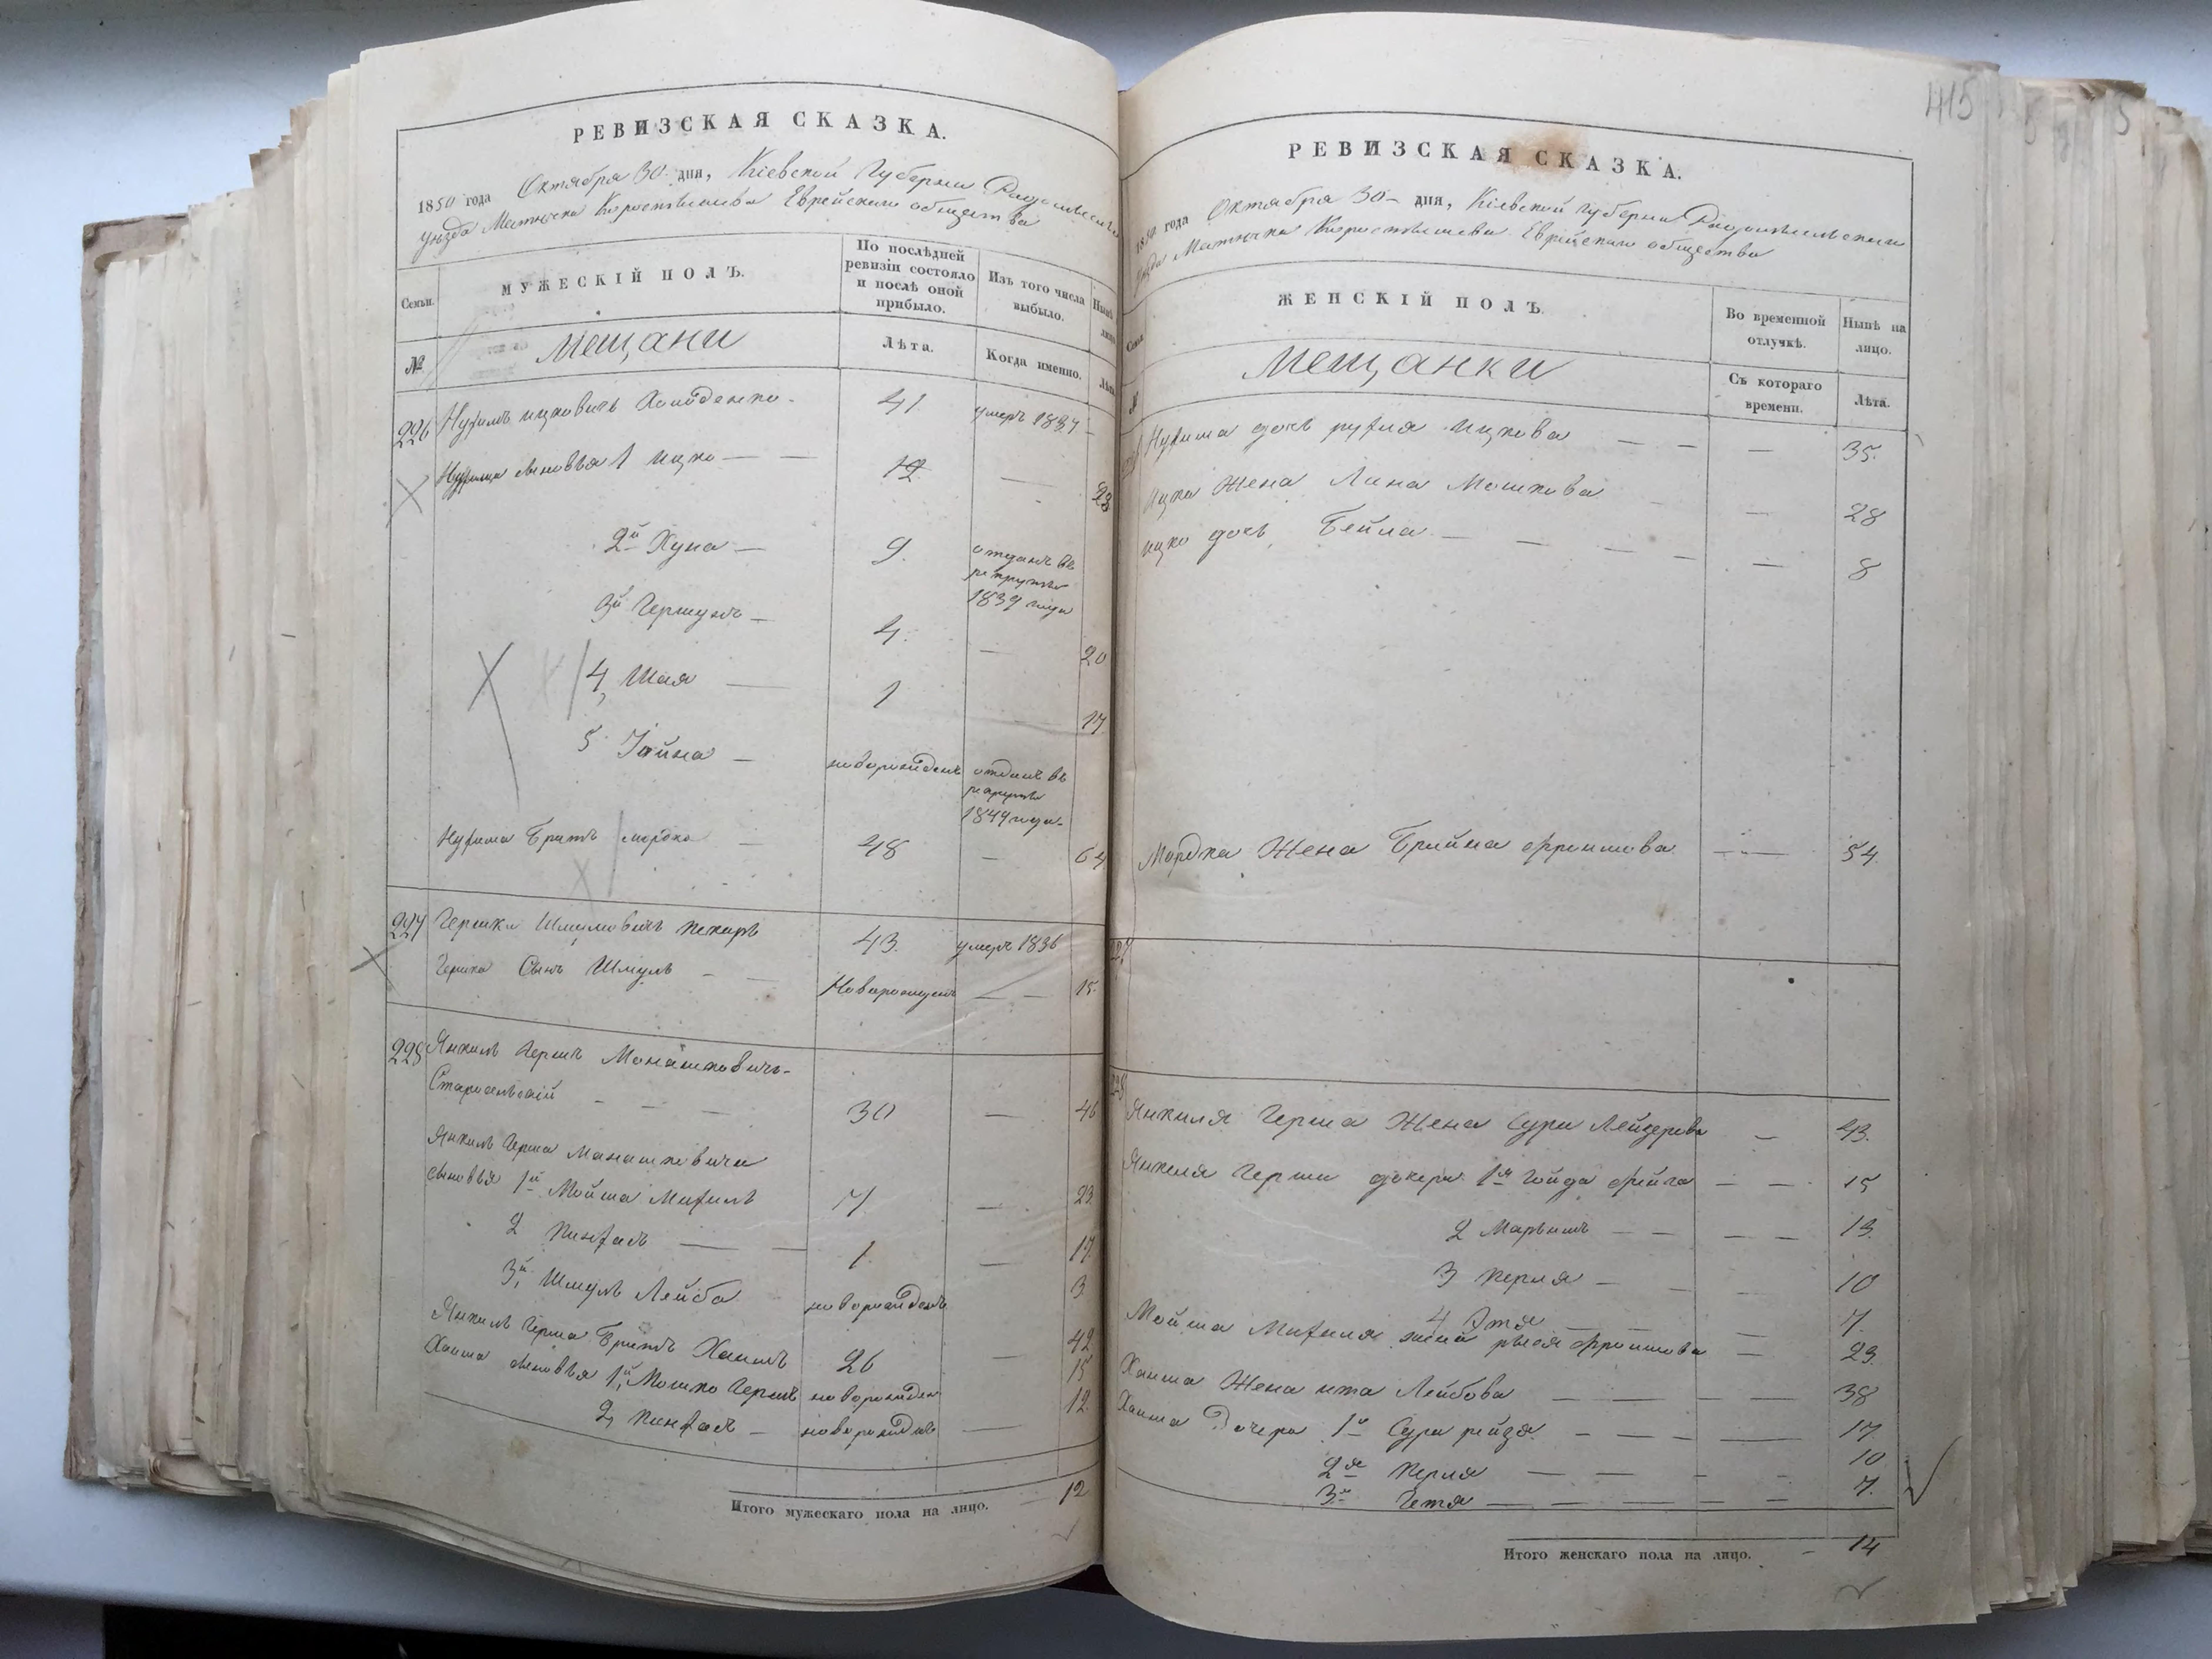 415
РЕВИЗСКАЯ СКАЗКА.
1850 года Октября 30 дня, Кіевской Губерніи
уѣзда Мѣстечка Коростышева Еврейскаго общества
Семьи.
МУЖЕСКІЙ ПОЛЪ.
По послѣдней ревизіи состояло и послѣ оной прибыло.
Изъ того числа выбыло.
№
Мещани
Лѣта.
Когда именно.
226 Нухимъ ицковичъ 41 умеръ 1837
Нухима сыновья 1 ицко 12 28
2й Хуна 9. отданъ въ рекруты 1839 года
3й Гершунъ 4. 20
4, Шая 1 17
5 Іойна новорожденъ отданъ въ рекруты 1849 года
Нухима Братъ мордко 48 64
227 Гершко Шмулевичъ пекаръ 43. умеръ 1836
Гершка Сынъ Шмуль Новорожденъ 15.
228 Янкель Гершъ Монашковичъ
Старосельскій 30 46
Янкель Герша Манашковича
сыновья 1й Мойша Михель 7 23
2 Пинхасъ 1. 17.
3й Шмуль Лейба новорожденъ 3
Янкель Герша Братъ Хаимъ 26 42
Хаима сыновья 1й Мошко Гершъ новорожден 15
2, Пинхасъ новорожденъ 12.
Итого мужескаго пола на лицо. 12
РЕВИЗСКАЯ СКАЗКА.
1850 года Октября 30 дня, Кіевской Губерніи Радомысльскаго
уѣзда Мѣстечка Коростышева Еврейскаго общества
ЖЕНСКІЙ ПОЛЪ.
Во временной отлучкѣ.
Нынѣ на лицо.
№
Мещанки
Съ котораго времени.
Лѣта.
Нухима дочь рухля ицкова 35.
Ицка Жена Лина Мошкова 28
ицко дочь Бейла 8
Мордка Жена Брайна Фроимова 54.
227
228
Янкеля Герша Жена Сура Лейзерова 43.
Янкеля Герши дочери 1я Гойда Фейга 15
2 Марьямъ 13.
3 Перля 10
4 Этя 7.
Мойша Михеля жена рыся Фроимова 23.
Хаима Жена ита Лейбова 38
Хаима Дочери 1я Сура рейзя 17.
2я Перля 10
3я Гетя 7.
Итого женскаго пола на лицо. 14